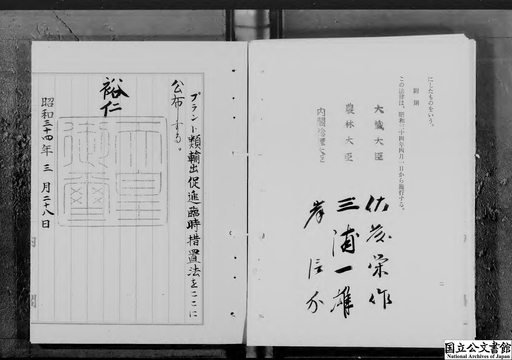 にしたものをいう。
附則
この法律は、昭和三十四年四月一日から施行する。
大蔵大臣 佐藤栄作
農林大臣 三浦一雄
内閣総理大臣 岸信介
プラント類輸出促進臨時措置法をここに
公布する。
裕仁
天皇御璽
昭和三十四年三月二十八日
国立公文書館
National Archives of Japan